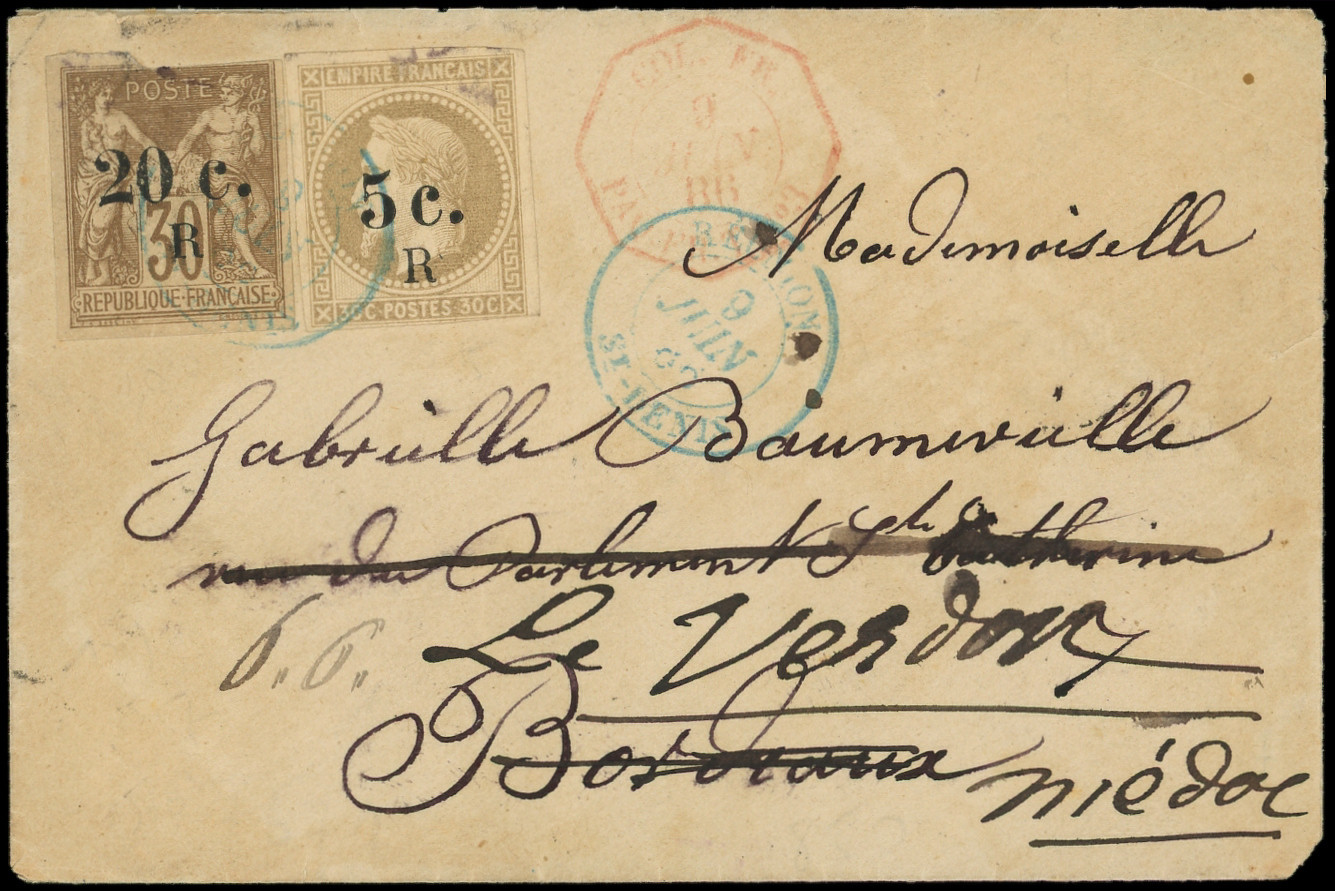 POSTE
20 c.
30
R
REPUBLIQUE FRANCAISE
EMPIRE FRANCAIS
5 c.
R
30C POSTES 30C
COL. FR.
9
JUIN
86
REUNION
9
JUIN
ST-DENIS
Mademoiselle
Gabrielle
rue du Parlement Ste Catherine
Le Verdon
Bordeaux
Médoc